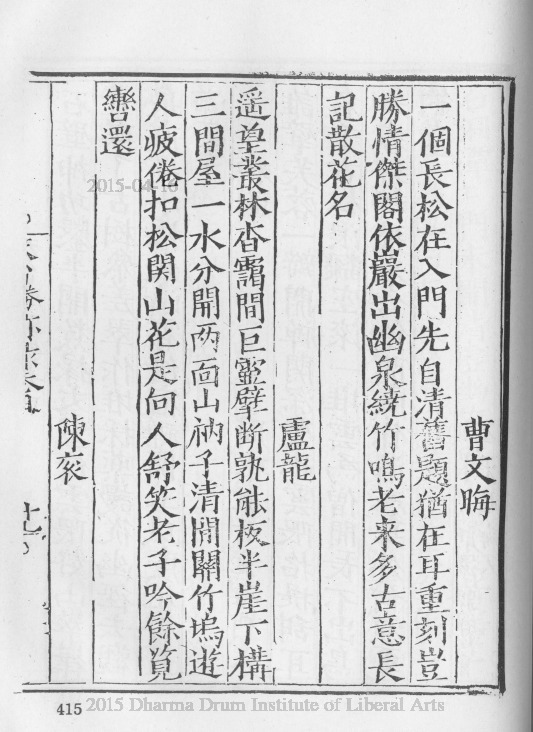 曹文晦
一個長松在入門先自清舊題猶在耳重刻豈
勝情傑閣依巖出幽泉繞竹鳴老來多古意長
記散花名
盧龍
遥望叢林杳靄間巨靈擘斷孰能扳半崖下構
三間屋一水分開兩面山衲子清閒關竹塢遊
人疲倦扣松関山花是向人舒笑老子吟餘覓
轡還
陳衮
十七
415
2015 Dharma Drum Institute of Liberal Arts